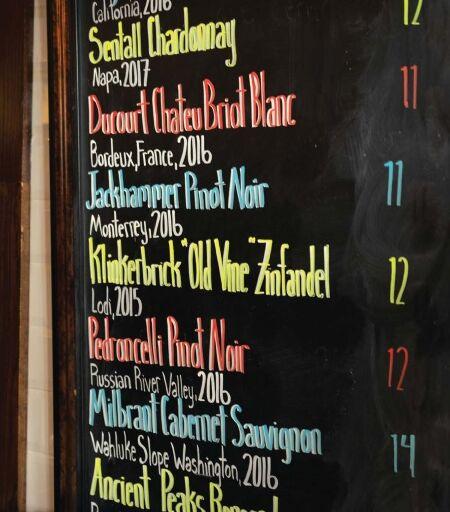 California, 2016 12
Sentall Chardonnay
Napa, 2017 11
Ducourt Chateu Briot Blanc
Bordeux, France, 2016 11
Jackhammer Pinot Noir
Monterrey, 2016
Klinkerbrick "Old Vine" Zinfandel 12
Lodi, 2015
Pedroncelli Pinot Noir 12
Russian River Valley, 2016
Milbrant Cabernet Sauvignon 14
Wahluke Slope Washington, 2016
Ancient Peaks